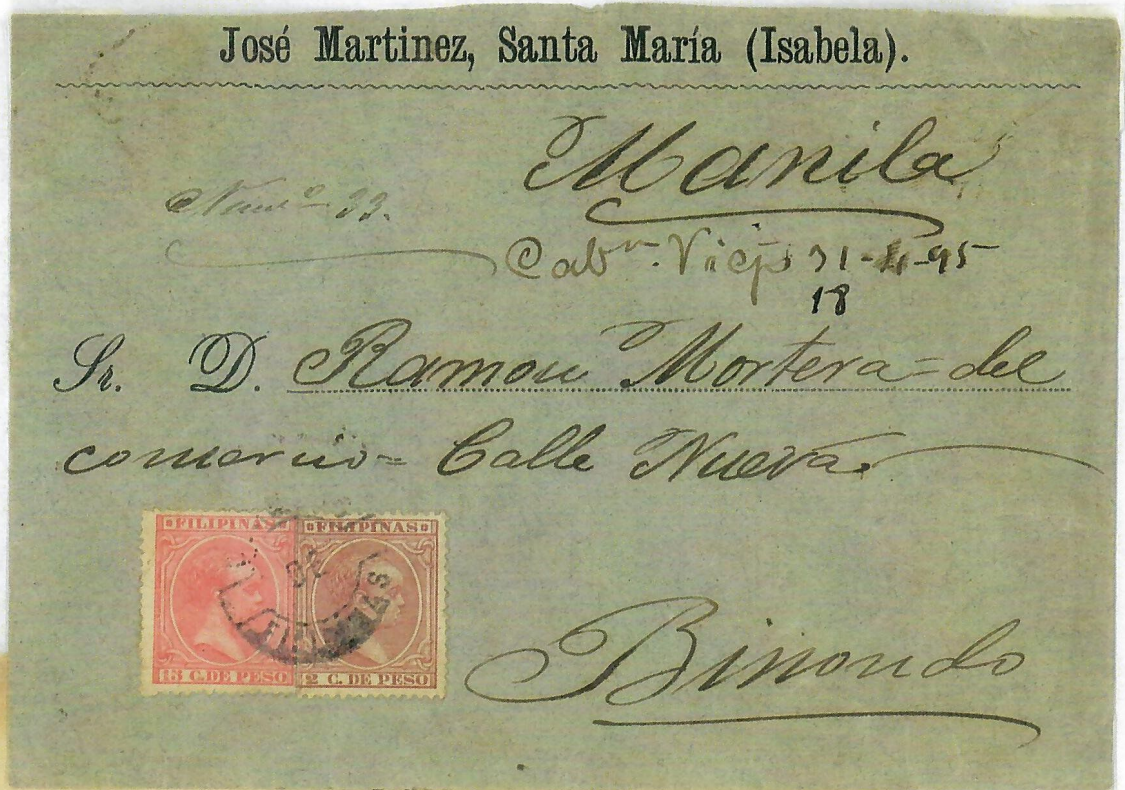 José Martinez, Santa María (Isabela).
Manila
Numº 33.
Cabn. Viejo 31-4-95
18
Sr. D. Ramon Mortera = del
comercio = Calle Nueva.
FILIPINAS FILIPINAS
15 C. DE PESO 2 C. DE PESO
Binondo